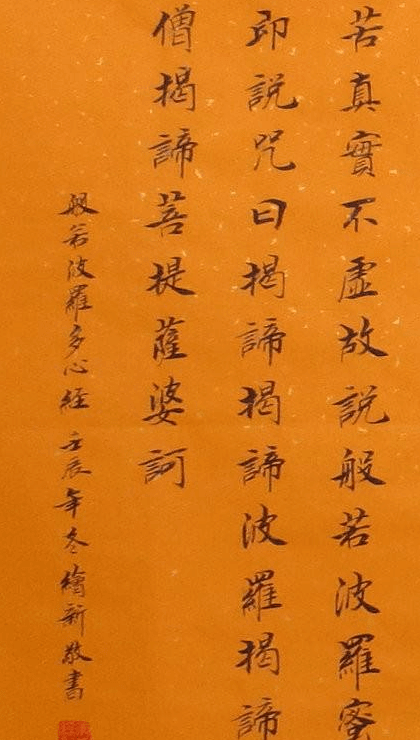 苦真實不虛故說般若波羅蜜
即說咒曰揭諦揭諦波羅揭諦
僧揭諦菩提薩婆訶
般若波羅多心經 壬辰年冬繪新敬書